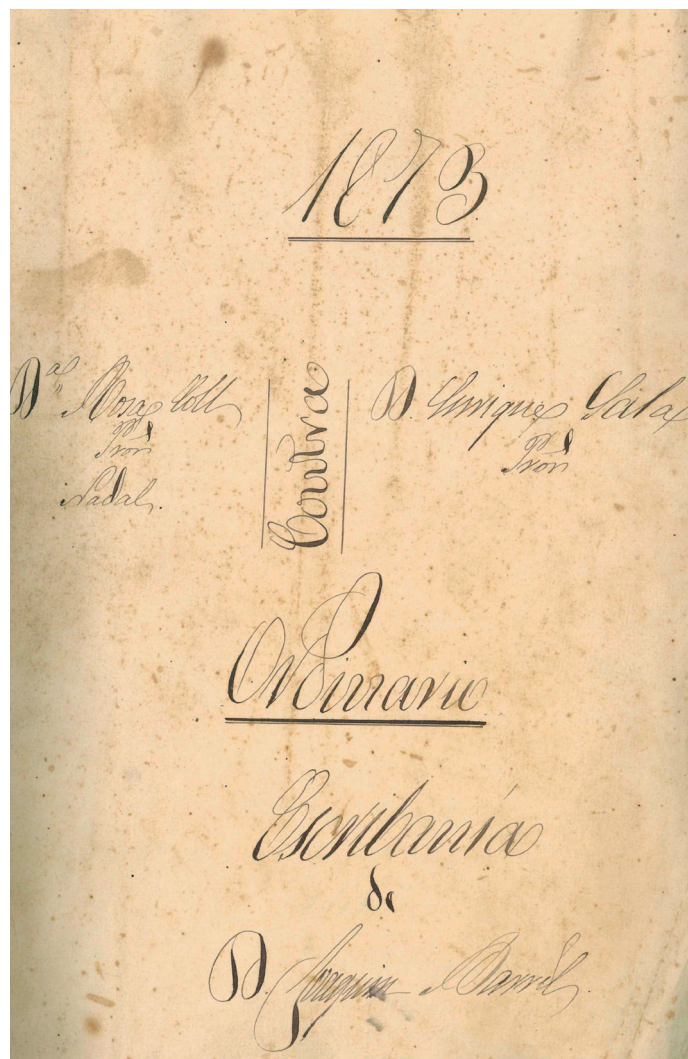 1873
Dª Rosa Coll
Pror
Nadal
Contra
D. Enrique Sala
Pror
Ordinario
Escribanía
de
D. Joaquin